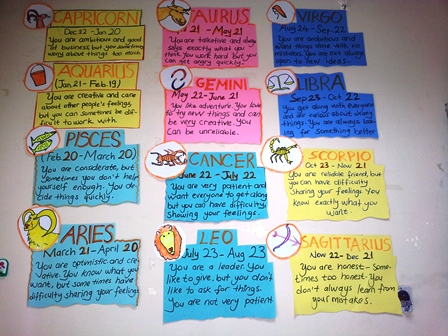 CAPRICORN
Dec 22 - Jan 20
You are ambitious and good
at business, but you sometimes
worry about things too much
TAURUS
21 - May 21
You are talkative and always
says exactly what you
think. You work hard but you can
get angry quickly.
VIRGO
Aug 24 - Sep 22
You are ambitious and
want things done with no
mistakes. You are not always
open to new ideas.
AQUARIUS
(Jan 21 - Feb. 19)
You are creative and care
about other people's feelings,
but you can sometimes be diffi-
cult to work with.
GEMINI
May 22 - June 21
You like adventure. You love
to try new things and can
be very creative. You can
be unreliable.
LIBRA
Sep 23 - Oct 22
You get along with everyone
and are curious about many
things. You are always look-
ing for something better
PISCES
(Feb 20 - March 20)
You are considerate, but
sometimes you don't help
yourself enough. You de-
cide things quickly.
CANCER
June 22 - July 22
You are very patient and
want everyone to get along
but you can have difficulty
showing your feelings.
SCORPIO
Oct 23 - Nov 21
You are reliable friend, but
you can have difficulty
sharing your feelings. You
know exactly what you
want.
ARIES
March 21 - April 20
You are optimistic and cre-
ative. You know what you
want, but some times have
difficulty sharing your feelings
LEO
July 23 - Aug 23
You are a leader. You
like to give, but you don't
like to ask for things.
You are not very patient
SAGITTARIUS
Nov 22 - Dec 21
You are honest - Some-
times too honest. You
don't always learn from
your mistakes.